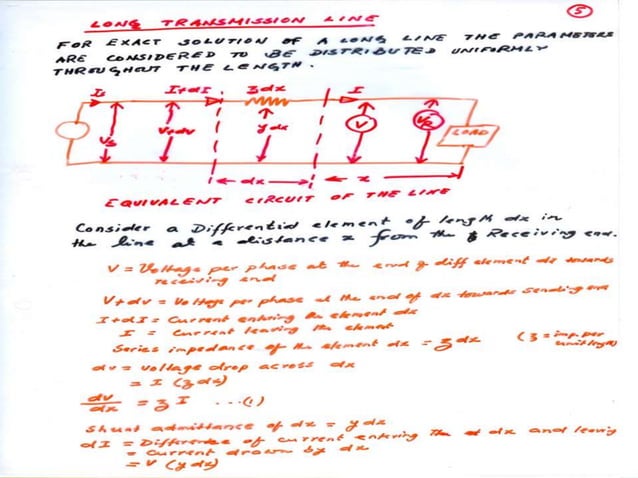 LONG TRANSMISSION LINE
5
FOR EXACT SOLUTION OF A LONG LINE THE PARAMETERS
ARE CONSIDERED TO BE DISTRIBUTED UNIFORMLY
THROUGHOUT THE LENGTH.
Is I+dI zdx I
Vs V+dv ydx V VR LOAD
dx x
EQUIVALENT CIRCUIT OF THE LINE
Consider a Differential element of length dx in
the line at a distance x from the Receiving end.
V = Voltage per phase at the end of diff element dx towards
receiving end
V+dv = Voltage per phase at the end of dx towards sending end
I+dI = Current entering the element dx
I = Current leaving the element
Series impedance of the element dx = zdx (z = imp. per
unit length)
dv = voltage drop across dx
= I (zdx)
dv/dx = zI ...(1)
Shunt admittance of dx = ydx
dI = Difference of current entering The dx and leaving
= Current drawn by dx
= V (ydx)